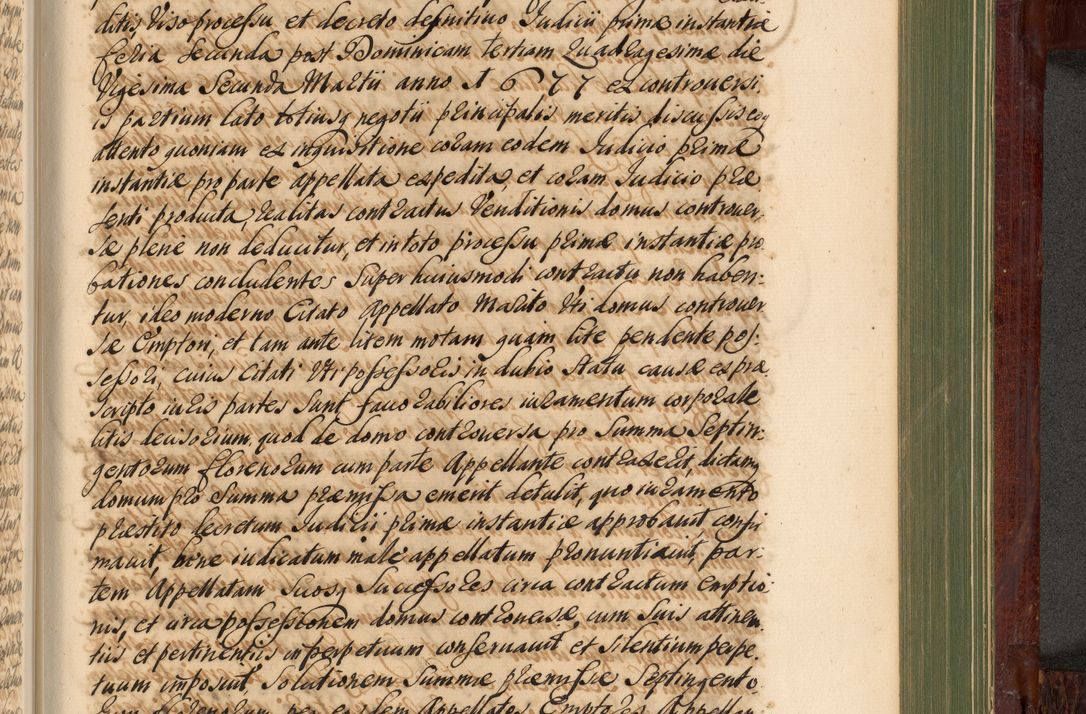 ditis, Viso processu et decreto definitivo Judicii primæ instantiæ
feria Secunda post Dominicam tertiam Quadragesimæ die
Vigesima Secunda Martii anno 1677 ex controversi
is partium lato totiusq negotii principalis meritis discussis eoq
attento quoniam ex inquisitione coram eodem Judicio primæ
instantiæ pro parte appellata expedita, et coram Judicio præ
senti producta, realitas contractus Venditionis domus controver
sæ plene non deducitur, et in toto processu primæ instantiæ pro
bationes concludentes Super huiusmodi contractu non haben:
tur, ideo moderno Citato Appellato Marito Uti domus controver
sæ Emptori, et tam ante litem motam quam lite pendente pos:
sessori, cuius Citati Uti possessoris in dubio Statu causæ ex præ
scripto iuris partes Sunt favorabiliores iuramentum corporale
litis decisorium, quod de domo controversa pro Summa Septin:
gentorum florenorum cum parte Appellante contraxerit, dictamq
domum pro Summa præmissa emerit detulit, quo iuramento
præstito decretum Judicii primæ instantiæ approbavit confir
mavit, bene iudicatum male appellatum pronuntiavit, par:
tem Appellatam Suosq Successores circa contractum emptio
nis, et circa possessionem domus controversæ, cum Suis attinen:
tiis et pertinentiis in perpetuum conservavit et Silentium perpe:
tuum imposuit, Solutionem Summæ præmissæ Septingento
rum florenorum per eundem Appellatos Emptores Appellan